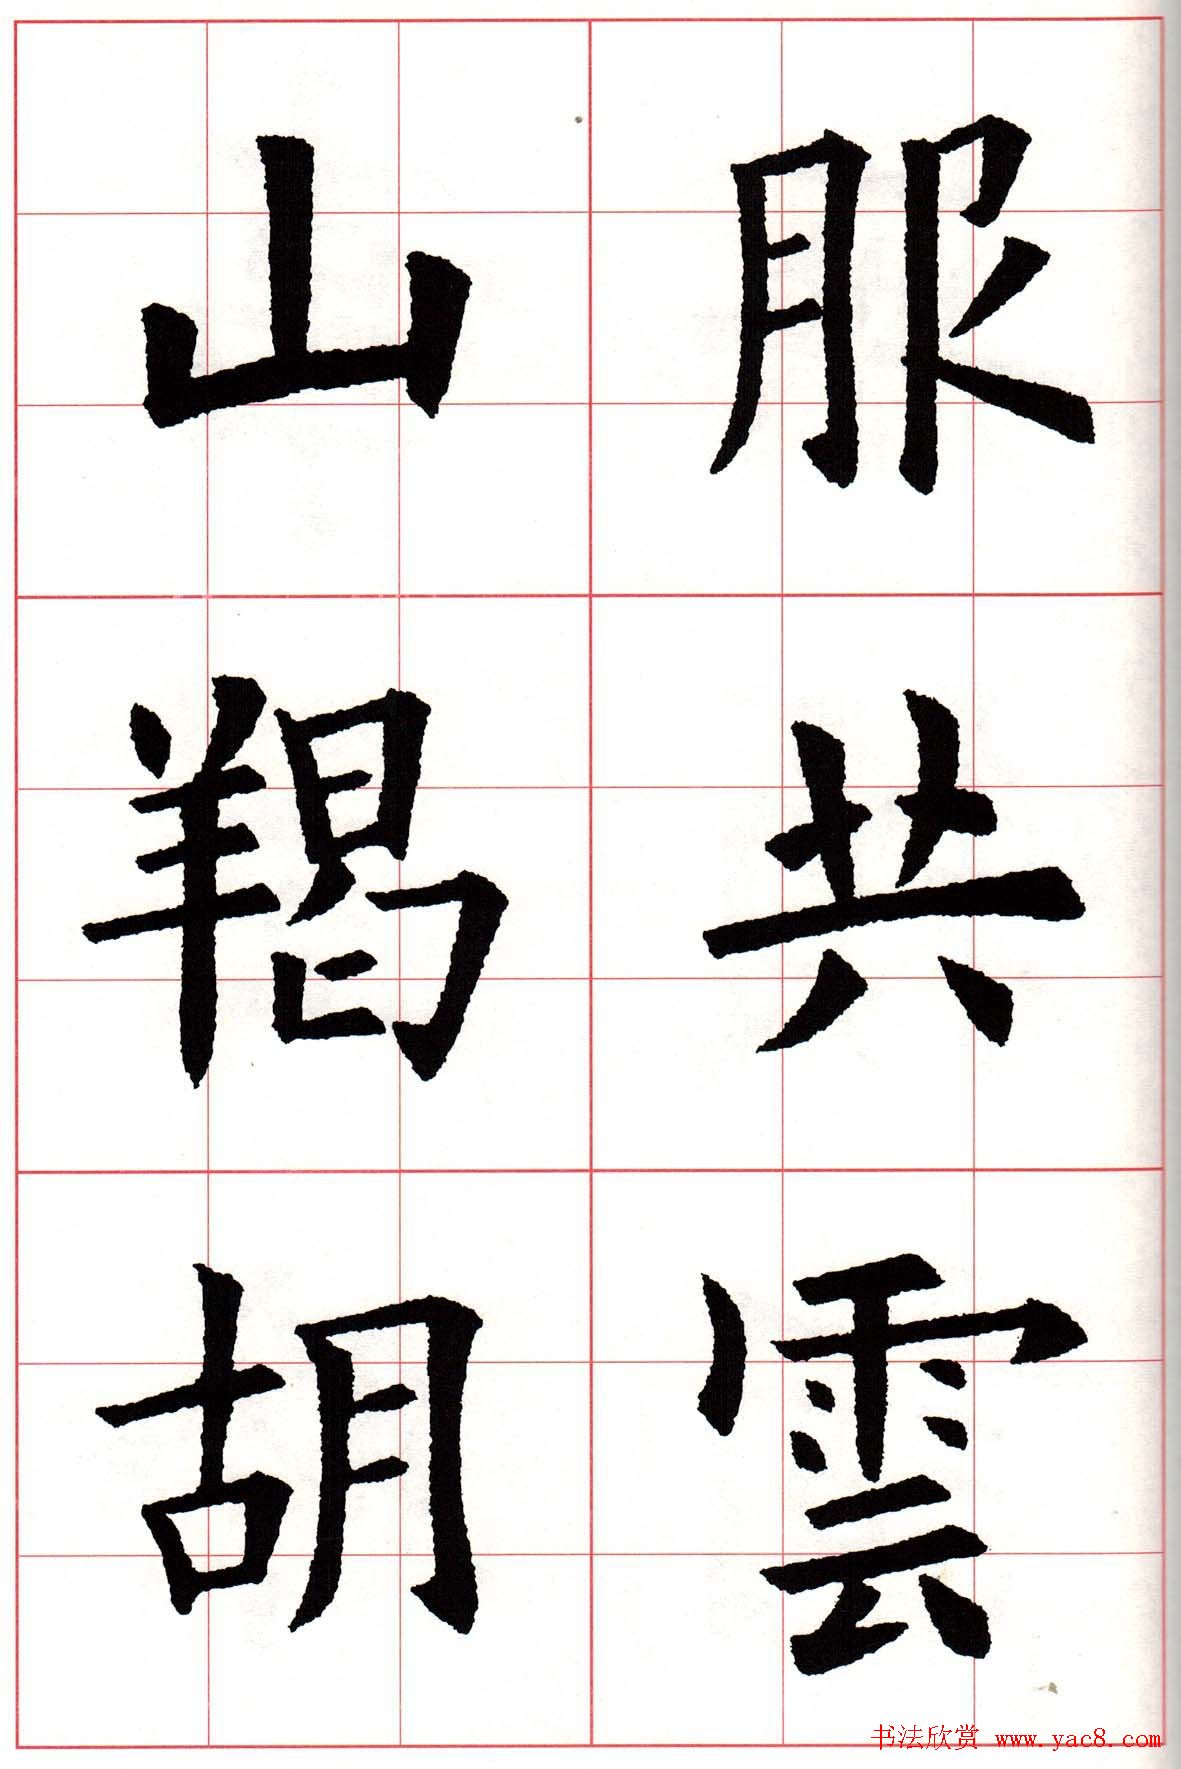 服共雲
山羯胡
书法欣赏 www.yac8.com